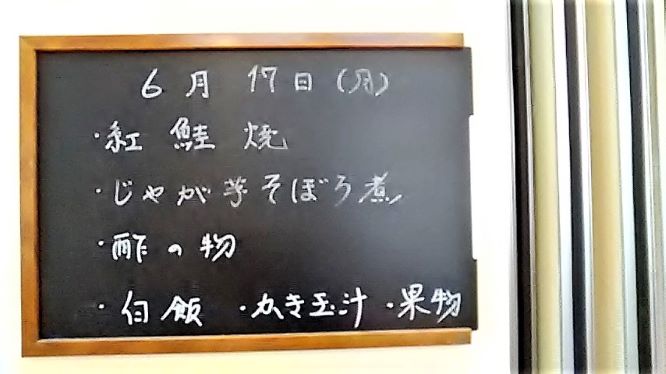 6月 17日(月)
・紅鮭焼
・じゃが芋そぼろ煮
・酢の物
・白飯 ・かき玉汁 ・果物